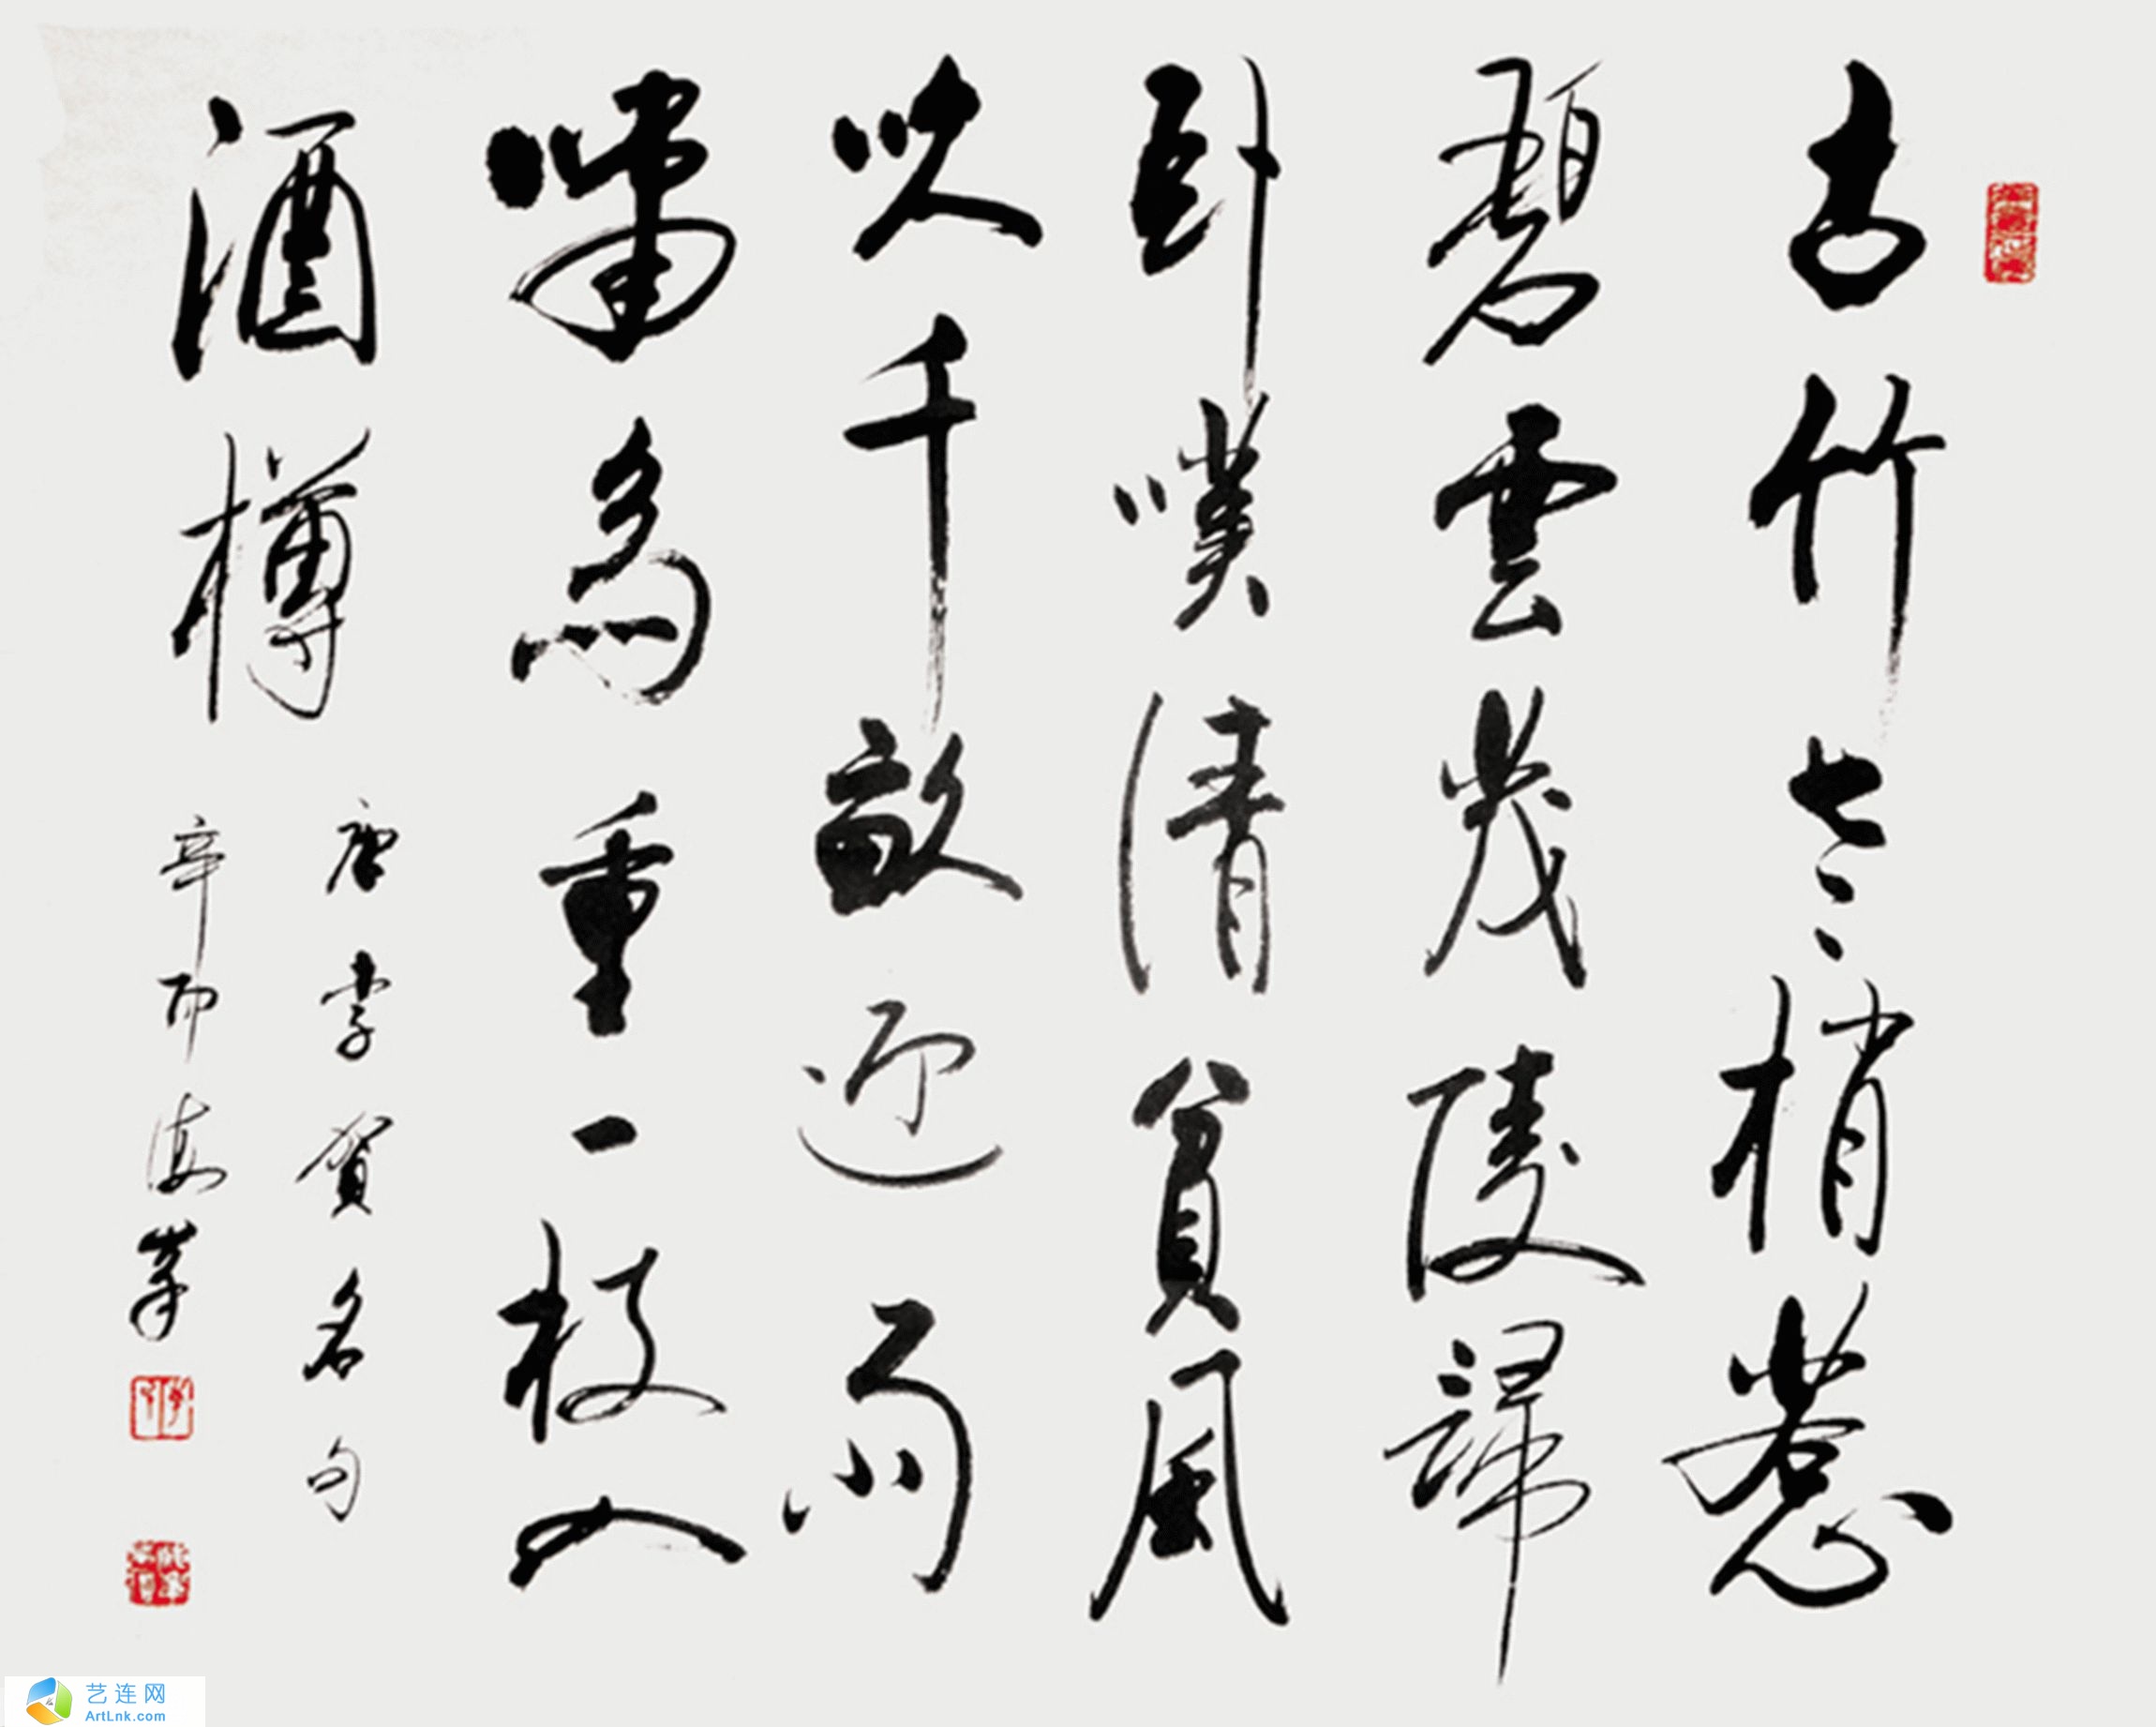 古竹老梢惹
碧雲茂陵歸
卧嘆清貧風
吹千畝迎雨
嘯鳥重一枝入
酒樽
唐李賀名句
辛卯海峯
艺连网
ArtLnk.com